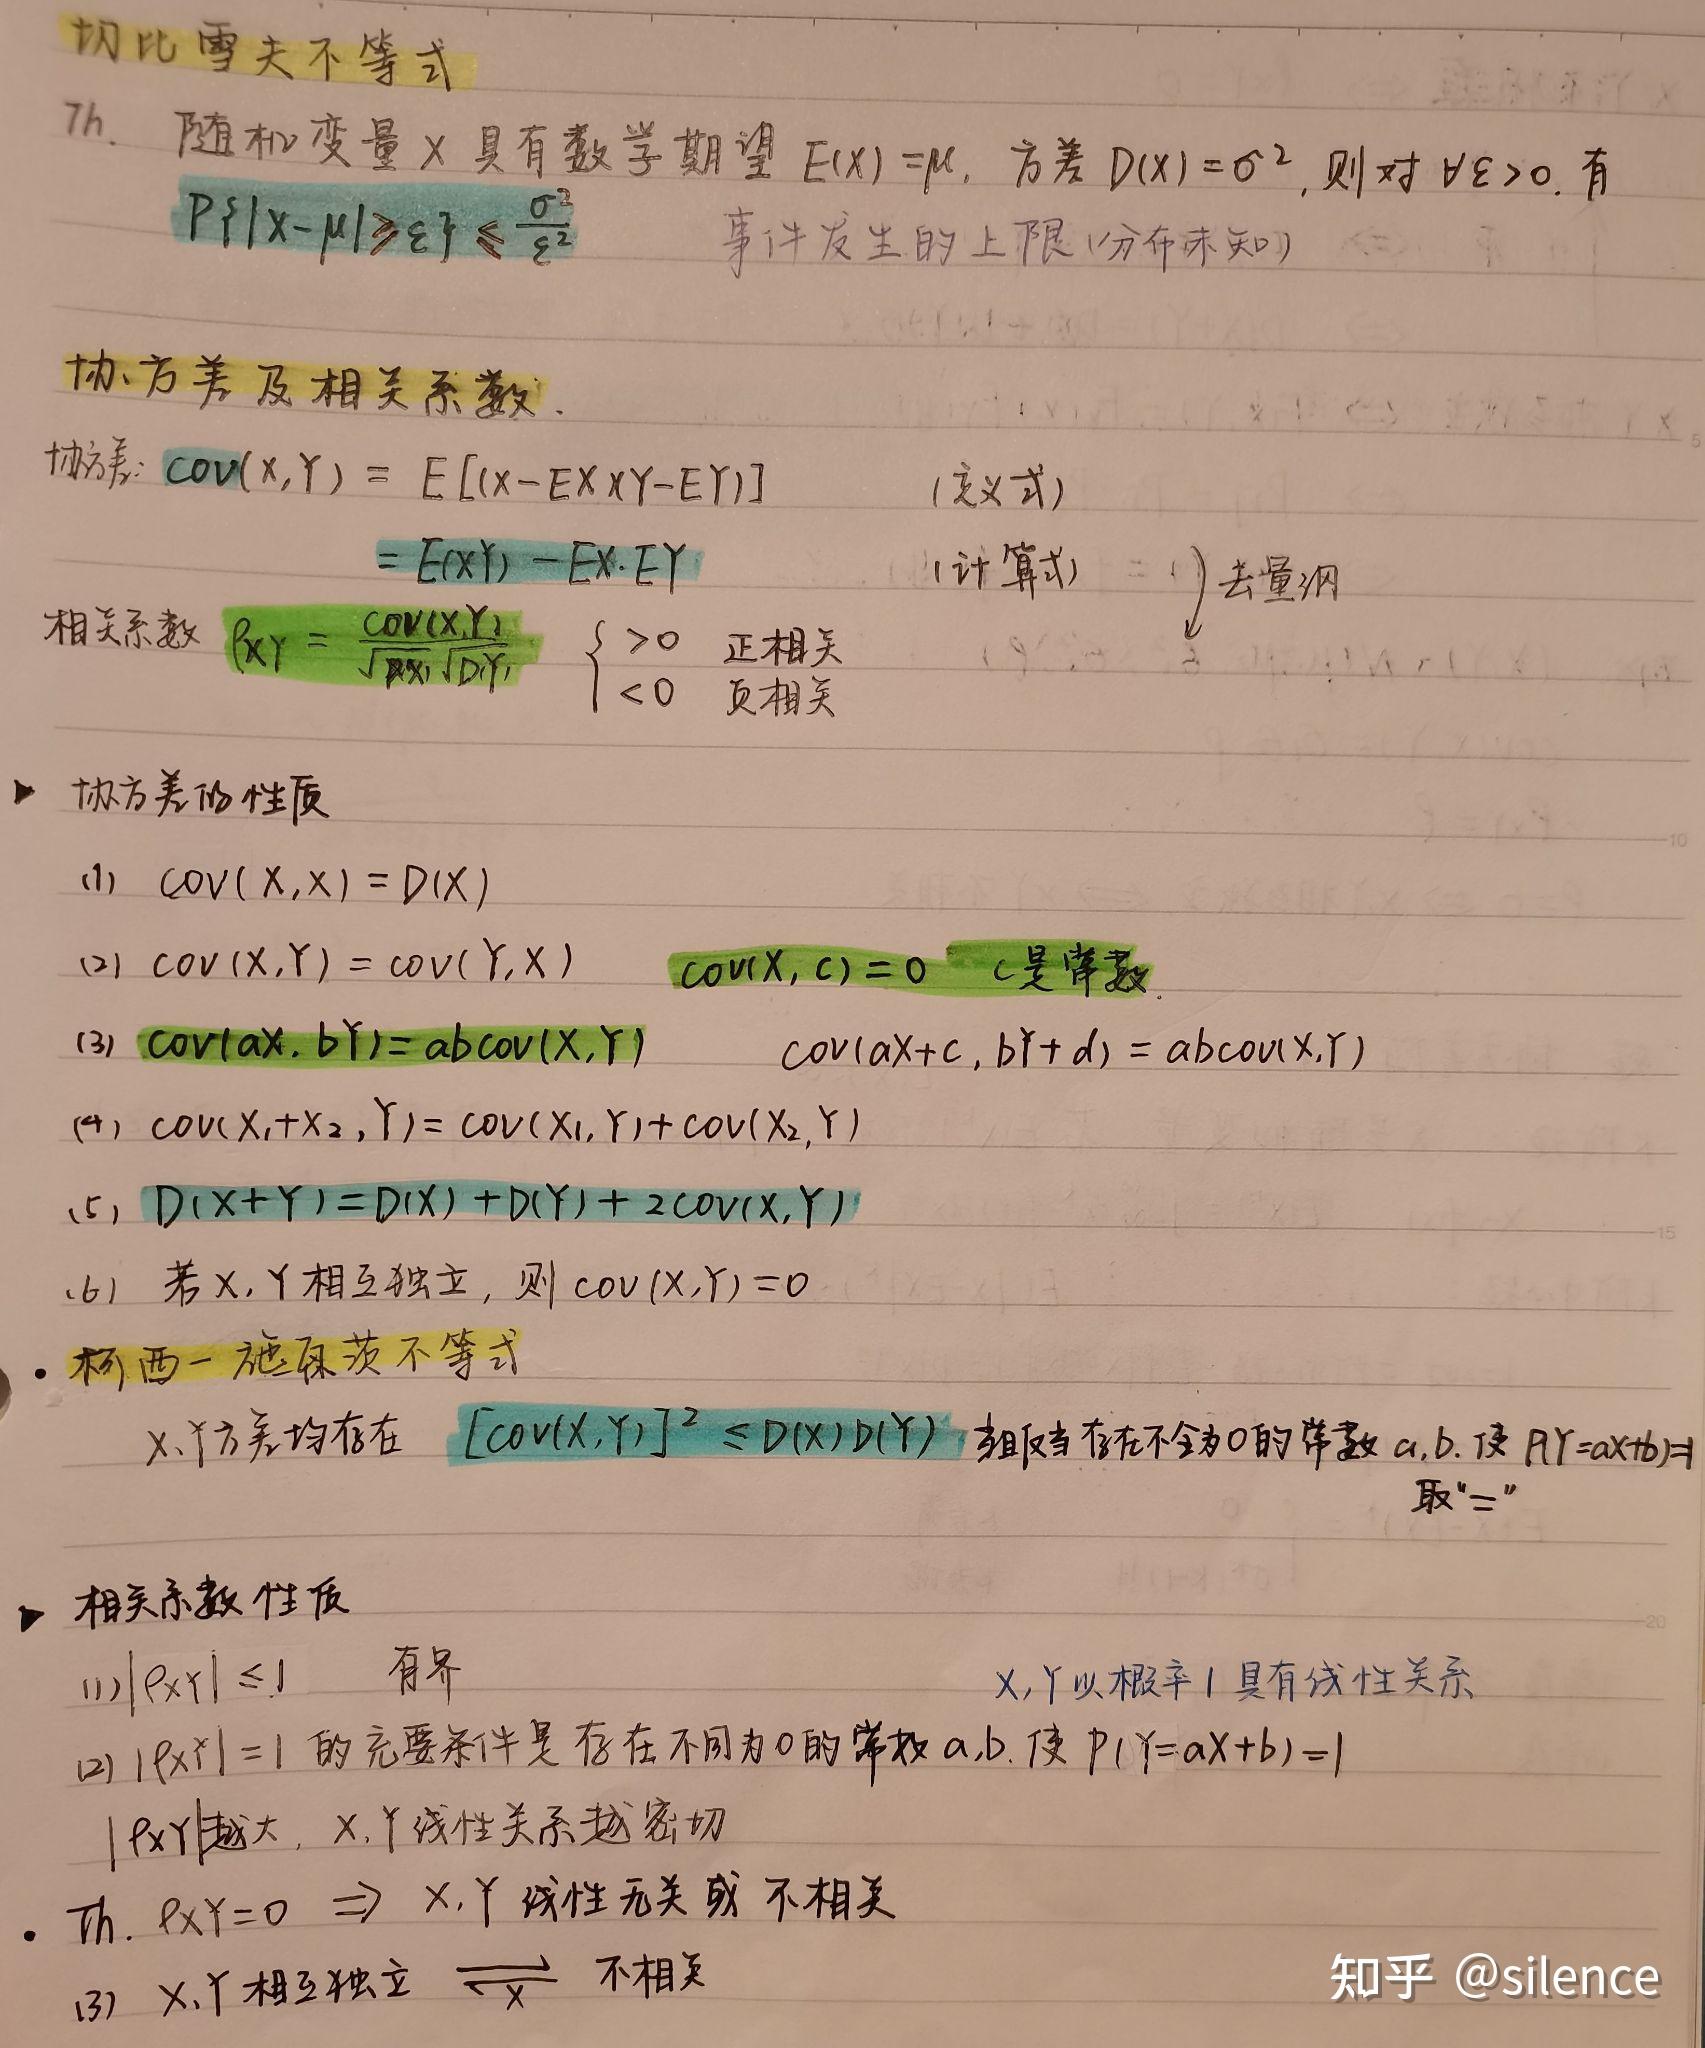 切比雪夫不等式
Th. 随机变量 X 具有数学期望 E(X)=μ, 方差 D(X)=σ², 则对 ∀ε>0. 有
P{|X-μ|≥ε} ≤ σ²/ε² 事件发生的上限(分布未知)
协方差及相关系数.
协方差: cov(X,Y) = E[(X-EX)(Y-EY)] (定义式)
= E(XY) - EX·EY (计算式) 去量纲
相关系数 ρXY = cov(X,Y)/√D(X)√D(Y) { >0 正相关
<0 负相关
▶ 协方差的性质
(1) cov(X,X)=D(X)
(2) cov(X,Y)=cov(Y,X) cov(X,c)=0 c是常数.
(3) cov(aX,bY)=abcov(X,Y) cov(aX+c,bY+d)=abcov(X,Y)
(4) cov(X₁+X₂,Y)=cov(X₁,Y)+cov(X₂,Y)
(5) D(X+Y)=D(X)+D(Y)+2cov(X,Y)
(6) 若X,Y相互独立, 则cov(X,Y)=0
· 柯西-施瓦茨不等式
X、Y方差均存在 [cov(X,Y)]² ≤D(X)D(Y) 当且仅当存在不全为0的常数 a,b. 使 P(Y=aX+b)=1
取"="
▶ 相关系数性质
(1) |ρXY| ≤1 有界 X,Y以概率1具有线性关系
(2) |ρXY|=1 的充要条件是存在不同为0的常数a,b. 使P(Y=aX+b)=1
|ρXY|越大, X,Y线性关系越密切
· Th. ρXY=0 ⇒ X,Y线性无关或不相关
(3) X,Y相互独立 ⇌ 不相关
x
知乎 @silence